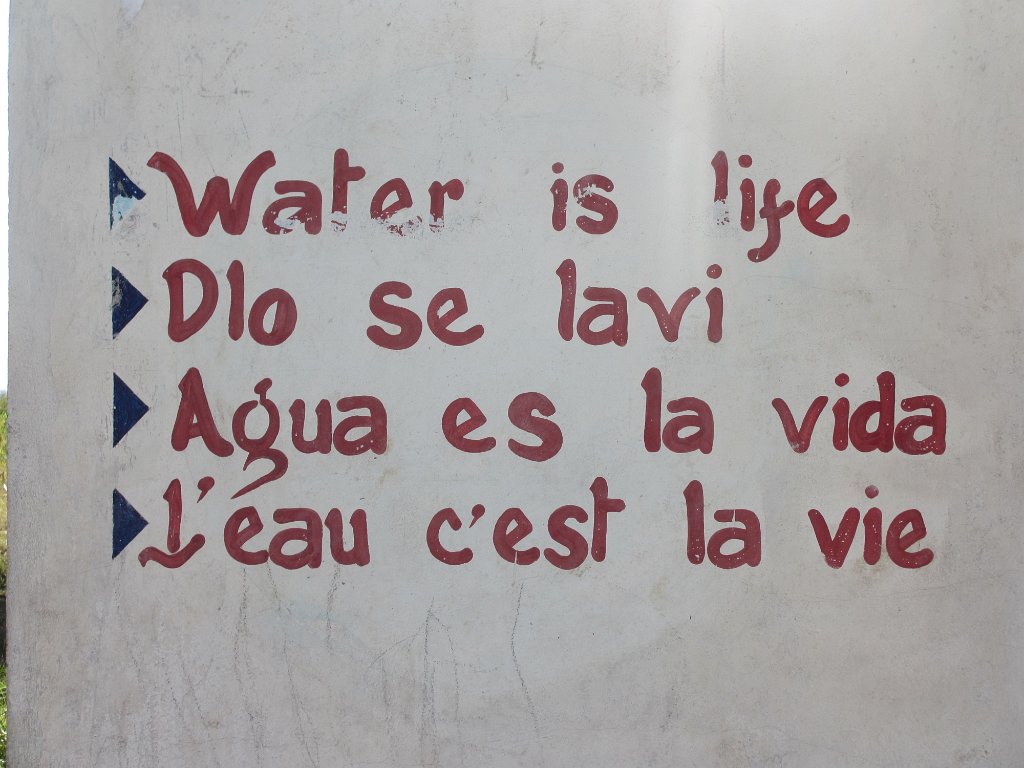 Water is life
Dlo se lavi
Agua es la vida
L'eau c'est la vie